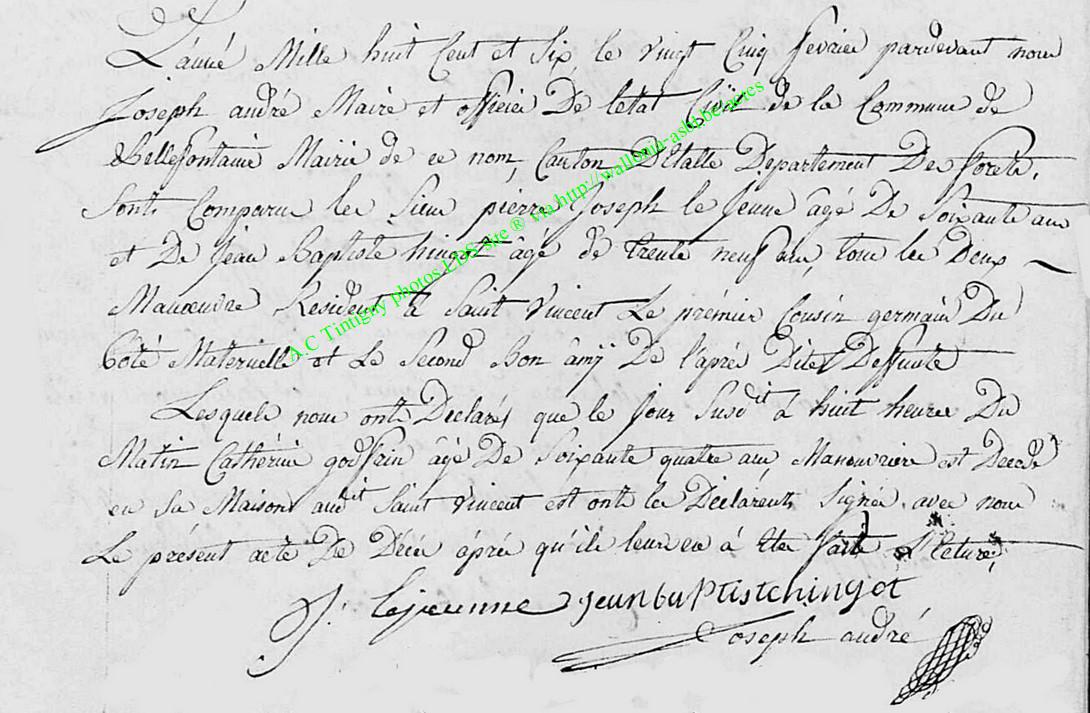 L'année Mille huit Cent et Six, le vingt Cinq fevrier pardevant nous
Joseph andré Maire et officier De letat Civil de la Commune de
Bellefontaine Mairie de ce nom, Canton D'Etalle Departement Des forets,
Sont Comparus les Sieurs pierre Joseph le Jeune âgé De Soixante ans
et De Jean Baptiste hingot âgé de trente neuf ans, tous les Deux
Manœuvre Résident à Saint Vincent Le prémier Cousin germain Du
Côté Maternelle et Le Second Bon âmÿ De l'après Dite Deffunte
Lesquels nous onts Déclarés que le Jour Susdit à huit heures Du
Matin Cathérine godfrin âgé De Soixante quatre ans Manouvriere est Decedé
en Sa Maison audit Saint Vincent est onts les Déclarents Signés avec nous
Le présent acte De Décés âprés qu'ils leurs en à Eter faite Lecture,
J. Lejeunne Jeanbaptistchingot
Joseph andré
A.C Tintigny photos LDS site ® via http://wallonia-asbl.be/actes